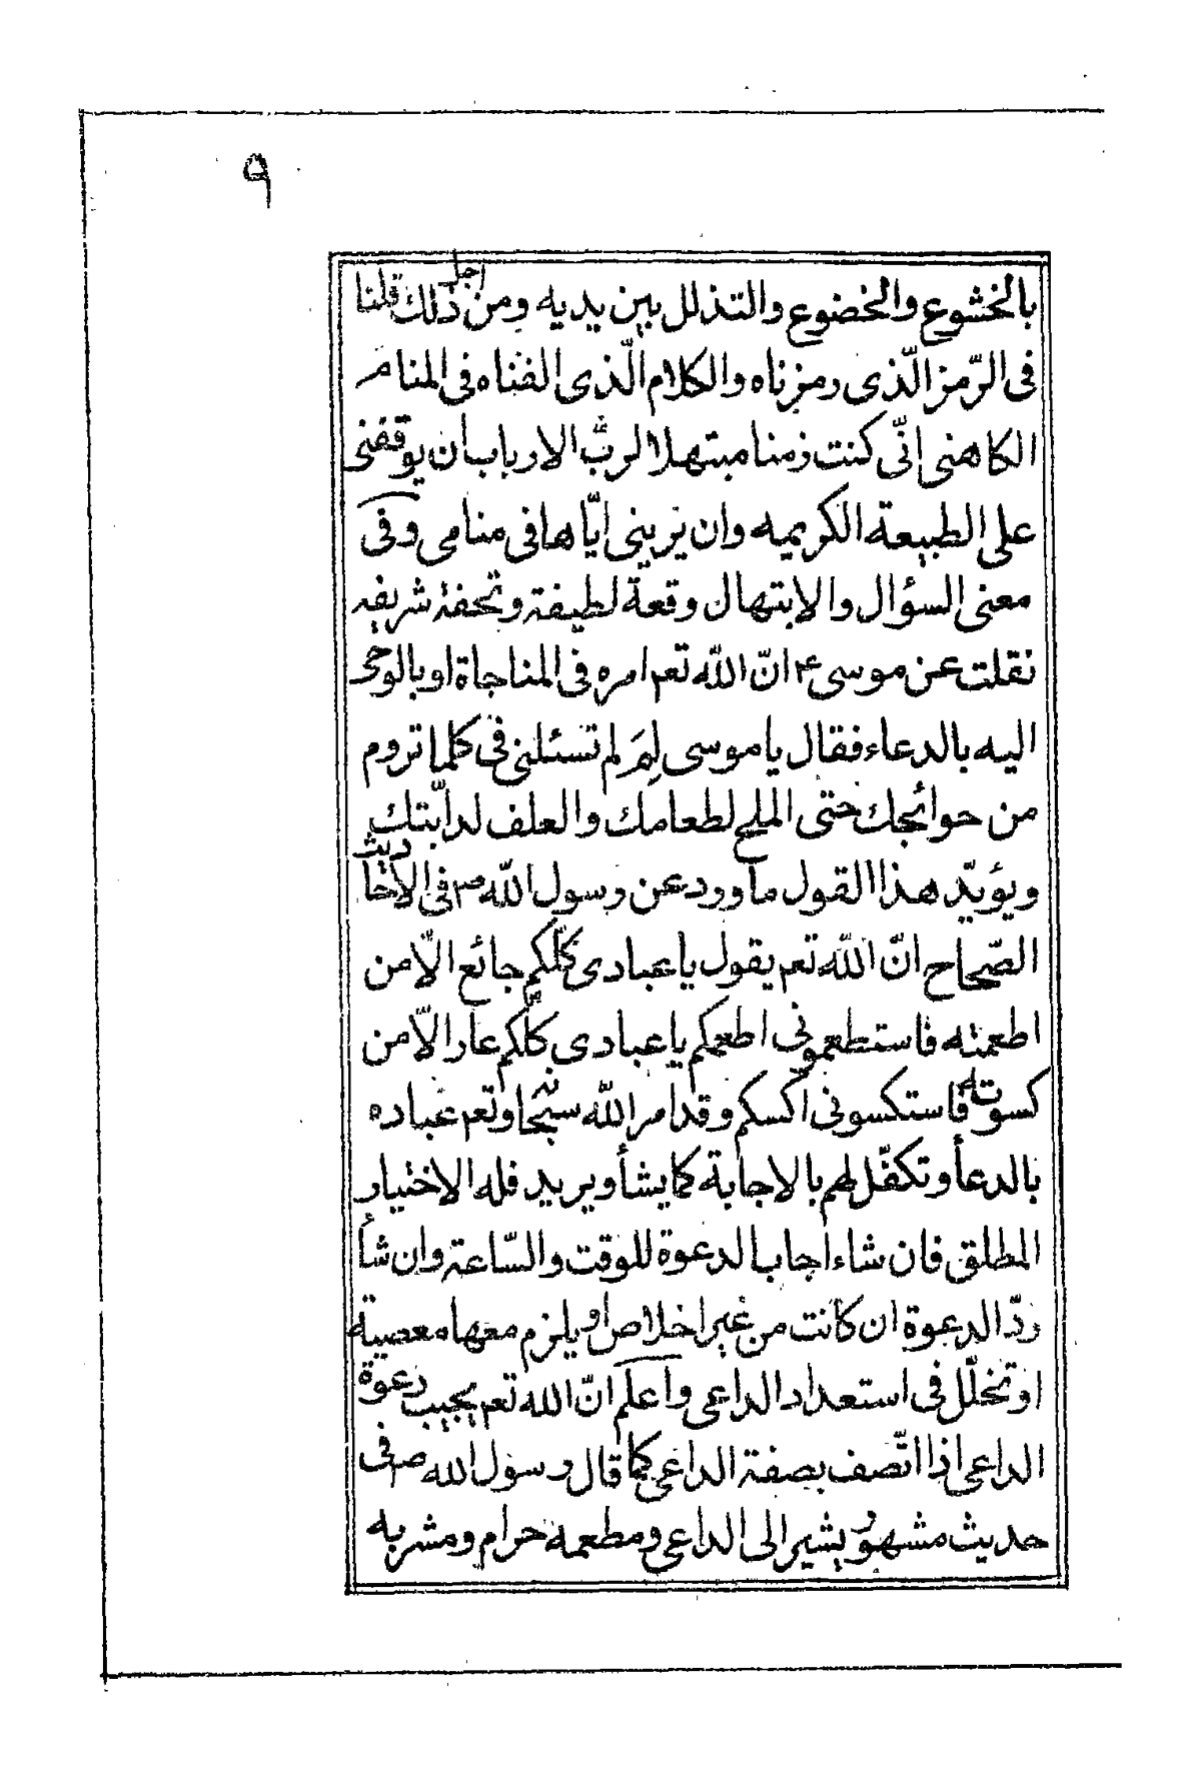 ٩
بالخشوع والخضوع والتذلل بين يديه ومن اجل ذلك قلنا
فى الرّمز الّذى رمزناه والكلام الّذى الفناه فى المنام
الكاهنى انّى كنت زمنا مبتهلا لربّ الارباب ان يوقفنى
على الطبيعة الكريمه وان يرينى ايّاها فى منامى وفى
معنى السؤال والابتهال وقعة لطيفة وتحفة شريفه
نقلت عن موسى ع انّ اللّه تعم امره فى المناجاة او بالوحى
اليه بالدعاء فقال يا موسى لِمَ لم تسئلنى فى كلما تروم
من حوائجك حتى الملح لطعامك والعلف لدابّتك
ويؤيّد هذا القول ما ورد عن رسول اللّه ص فى الاحاديث
الصّحاح انّ اللّه تعم يقول يا عبادى كلّكم جائع الّا من
اطعمته فاستطعمونى اطعمكم يا عبادى كلّكم عار الّا من
كسوته فاستكسونى اكسكم وقد امر اللّه سبحانه وتعم عباده
بالدعأ وتكفّل لهم بالاجابة كما يشأ ويريد فله الاختيار
المطلق فان شاء اجاب الدعوة للوقت والسّاعة وان شأ
ردّ الدعوة ان كانت من غير اخلاص او يلزم معها معصية
او تخلّل فى استعداد الداعى واعلم انّ الله تعم يجيب دعوة
الداعى اذا اتّصف بصفة الداعى كما قال رسول الله ص فى
حديث مشهور يشير الى الداعى ومطعمه حرام ومشربه